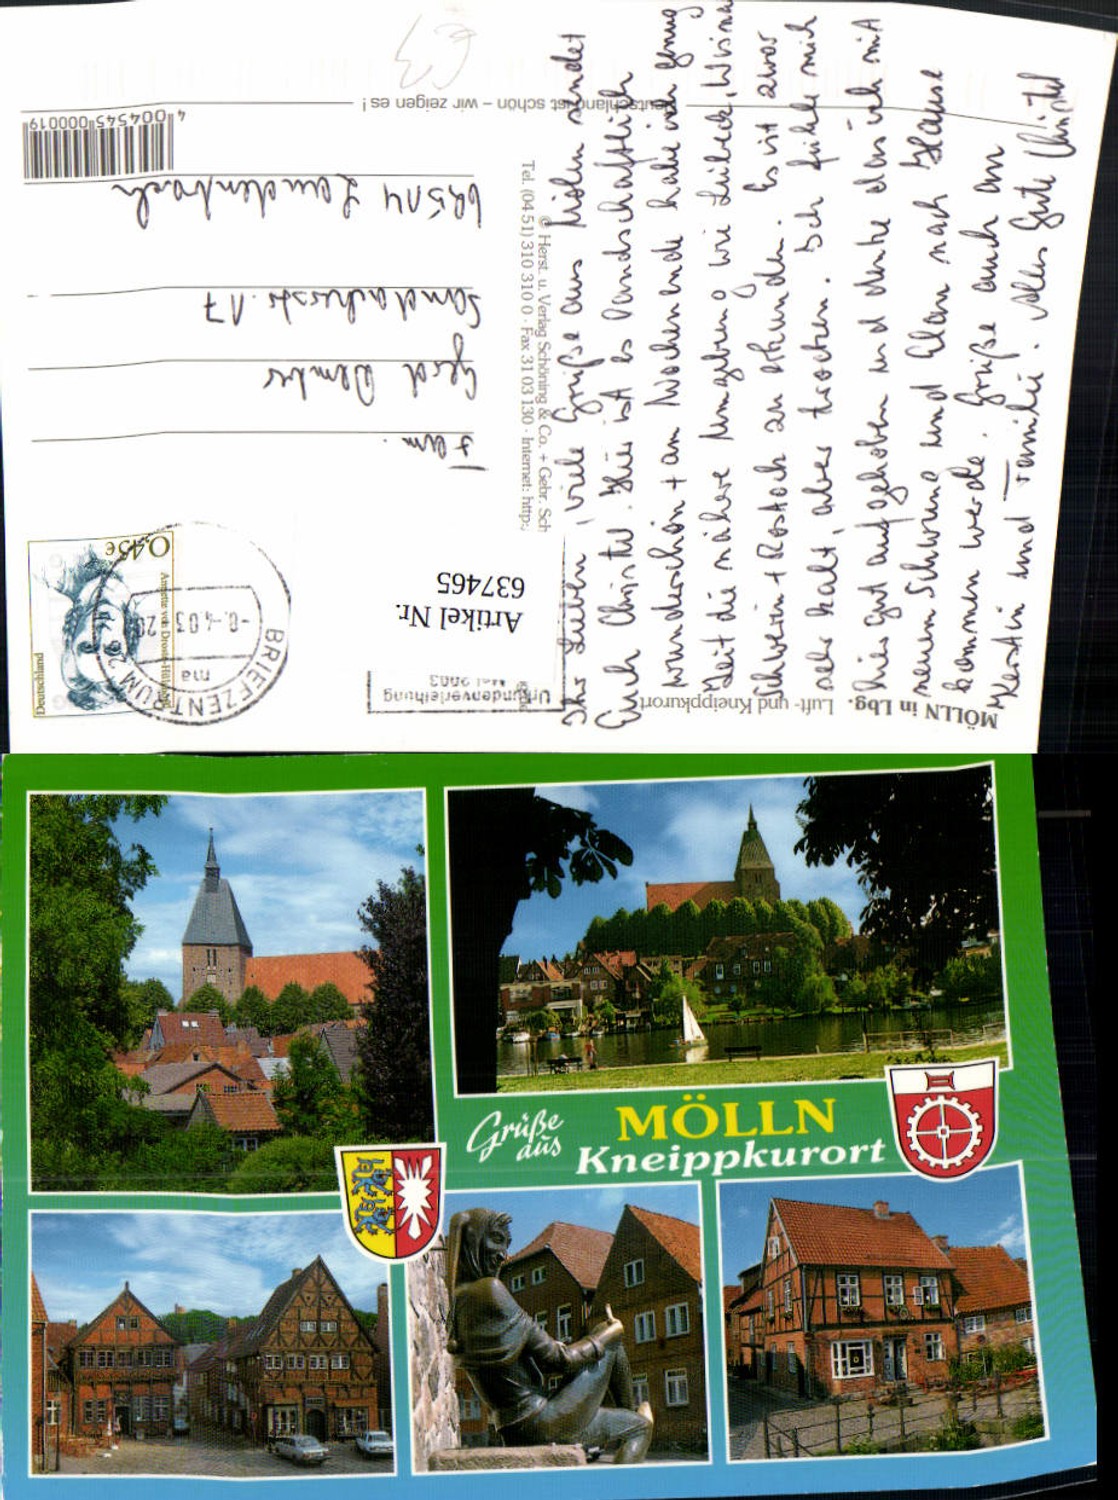 Deutschland ist schön – wir zeigen es !
4 004545 000019
Fam.
Gerd
17
69514 Laudenbach
Tel. (04 51) 310 310 0 · Fax 31 03 130 · Internet: http:
© Herst. u. Verlag Schöning & Co. + Gebr. Sch
0,45€
Annette von Droste-Hülshoff
Deutschland
BRIEFZENTRUM 2
ma
Artikel Nr.
637465
Urkundenverleihung
Mai 2003
MÖLLN in Lbg. Luft- und Kneippkurort
Ihr Lieben, viele Grüße aus Mölln sendet
Euch Christel. Hier ist es landschaftlich
wunderschön + am Wochenende habe ich genug
Zeit die nähere Umgebung wie Lübeck, Wismar
Schwerin + Rostock zu erkunden. Es ist zwar
sehr kalt, aber trocken. Ich fühle mich
hier gut aufgehoben und denke das ich mit
neuem Schwung und Elan nach Hause
kommen werde. Grüße auch an
Kerstin und Familie. Alles Gute Christel
Grüße
aus
MÖLLN
Kneippkurort